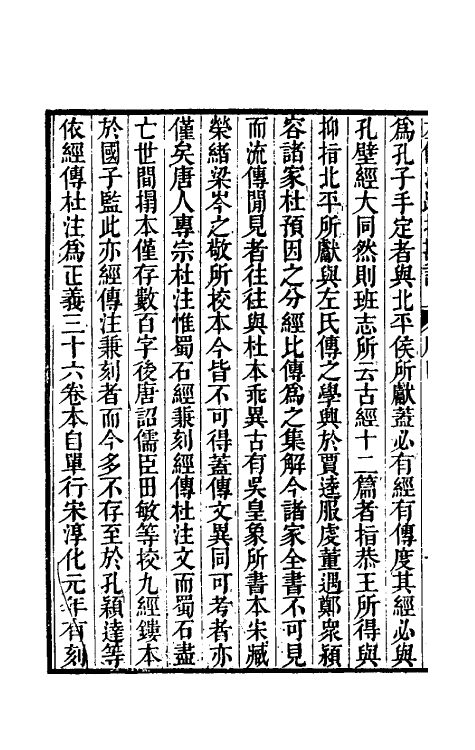 爲孔子手定者與北平侯所獻蓋必有經有傳度其經必與
孔壁經大同然則班志所云古經十二篇者指恭王所得與
抑指北平所獻與左氏傳之學興於賈逵服虔董遇鄭衆潁
容諸家杜預因之分經比傳爲之集解今諸家全書不可見
而流傳閒見者往往與杜本乖異古有吳皇象所書本宋臧
榮緒梁岑之敬所校本今皆不可得蓋傳文異同可考者亦
僅矣唐人專宗杜注惟蜀石經兼刻經傳杜注文而蜀石盡
亡世間搨本僅存數百字後唐詔儒臣田敏等校九經鏤本
於國子監此亦經傳注兼刻者而今多不存至於孔穎達等
依經傳杜注爲正義三十六卷本自單行宋淳化元年有刻